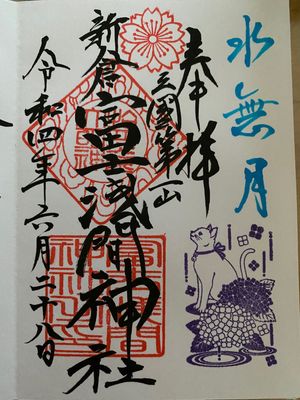 水無月
奉拝
三國第一山
新倉富士浅間神社
令和四年六月二十八日